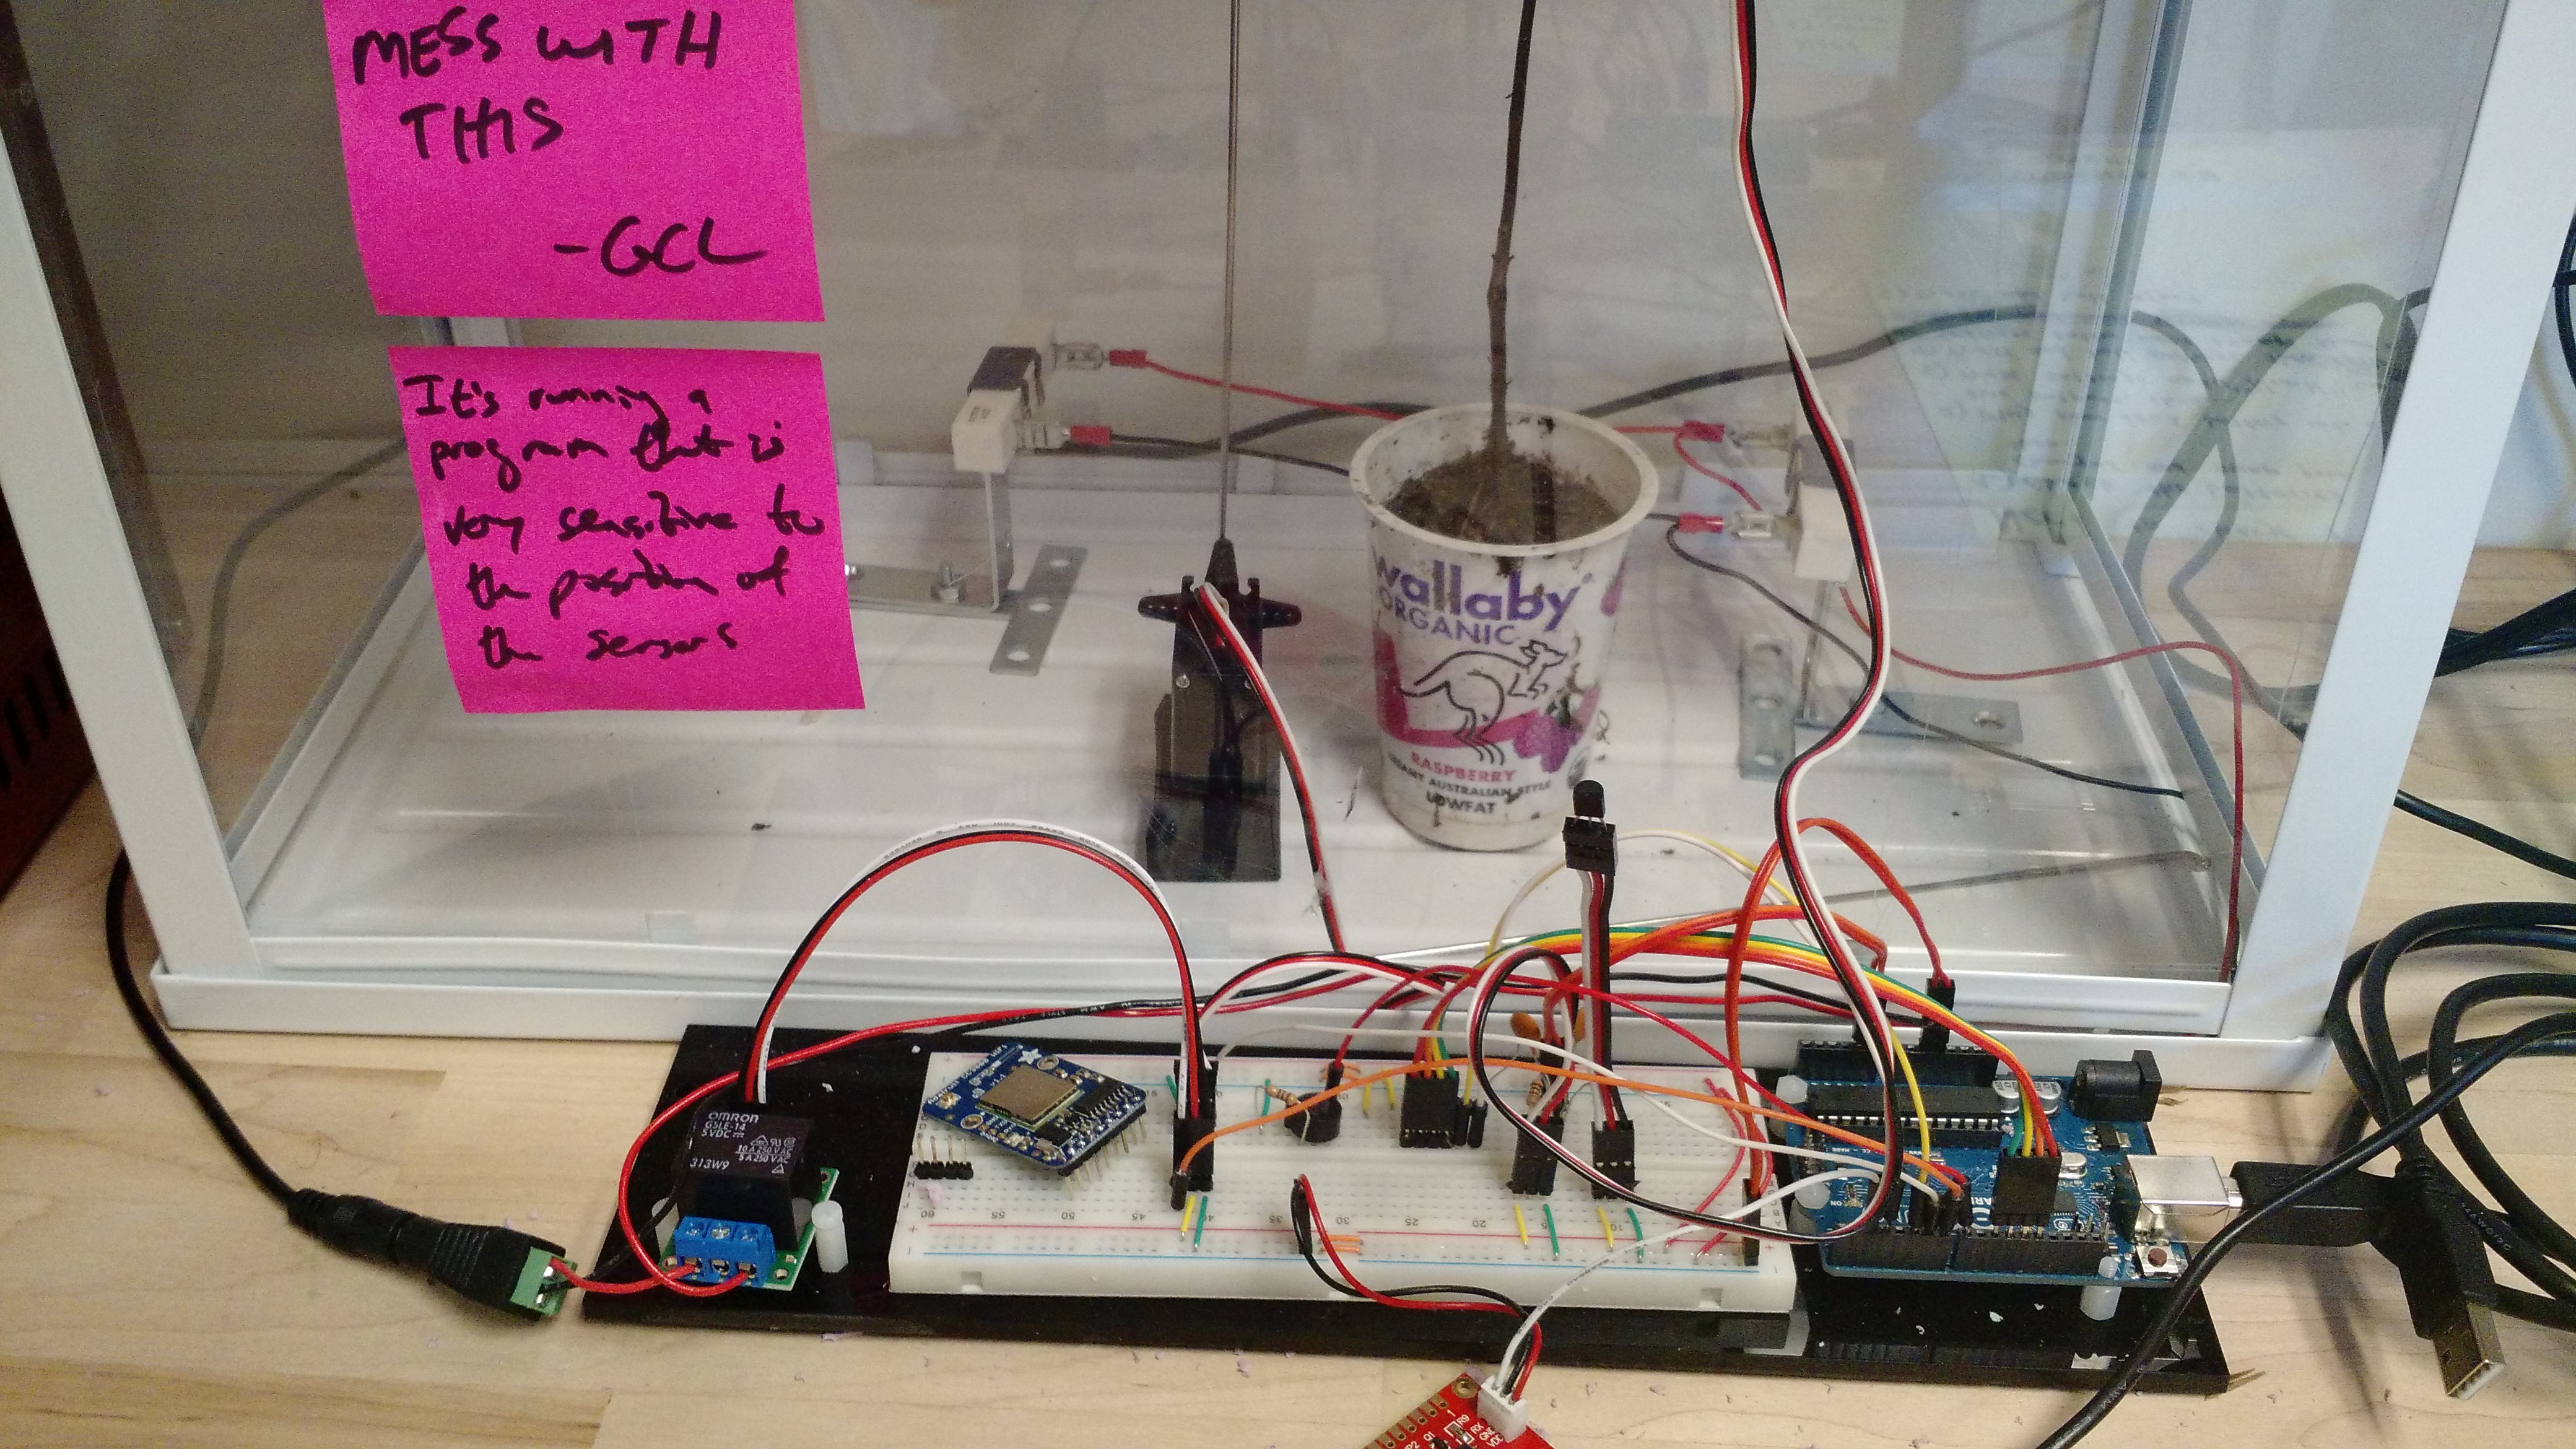 MESS WITH
THIS
-GCL
It's running a
program that is
very sensitive to
the position of
the sensors
wallaby
ORGANIC
RASPBERRY
CREAMY AUSTRALIAN STYLE
LOWFAT
OMRON
G5LE-14
5VDC
10A250VAC
5A250VAC
313W9
60
55
50
45
40
35
30
25
20
10
ON
1
R9
Q1
RX
GND
VCC